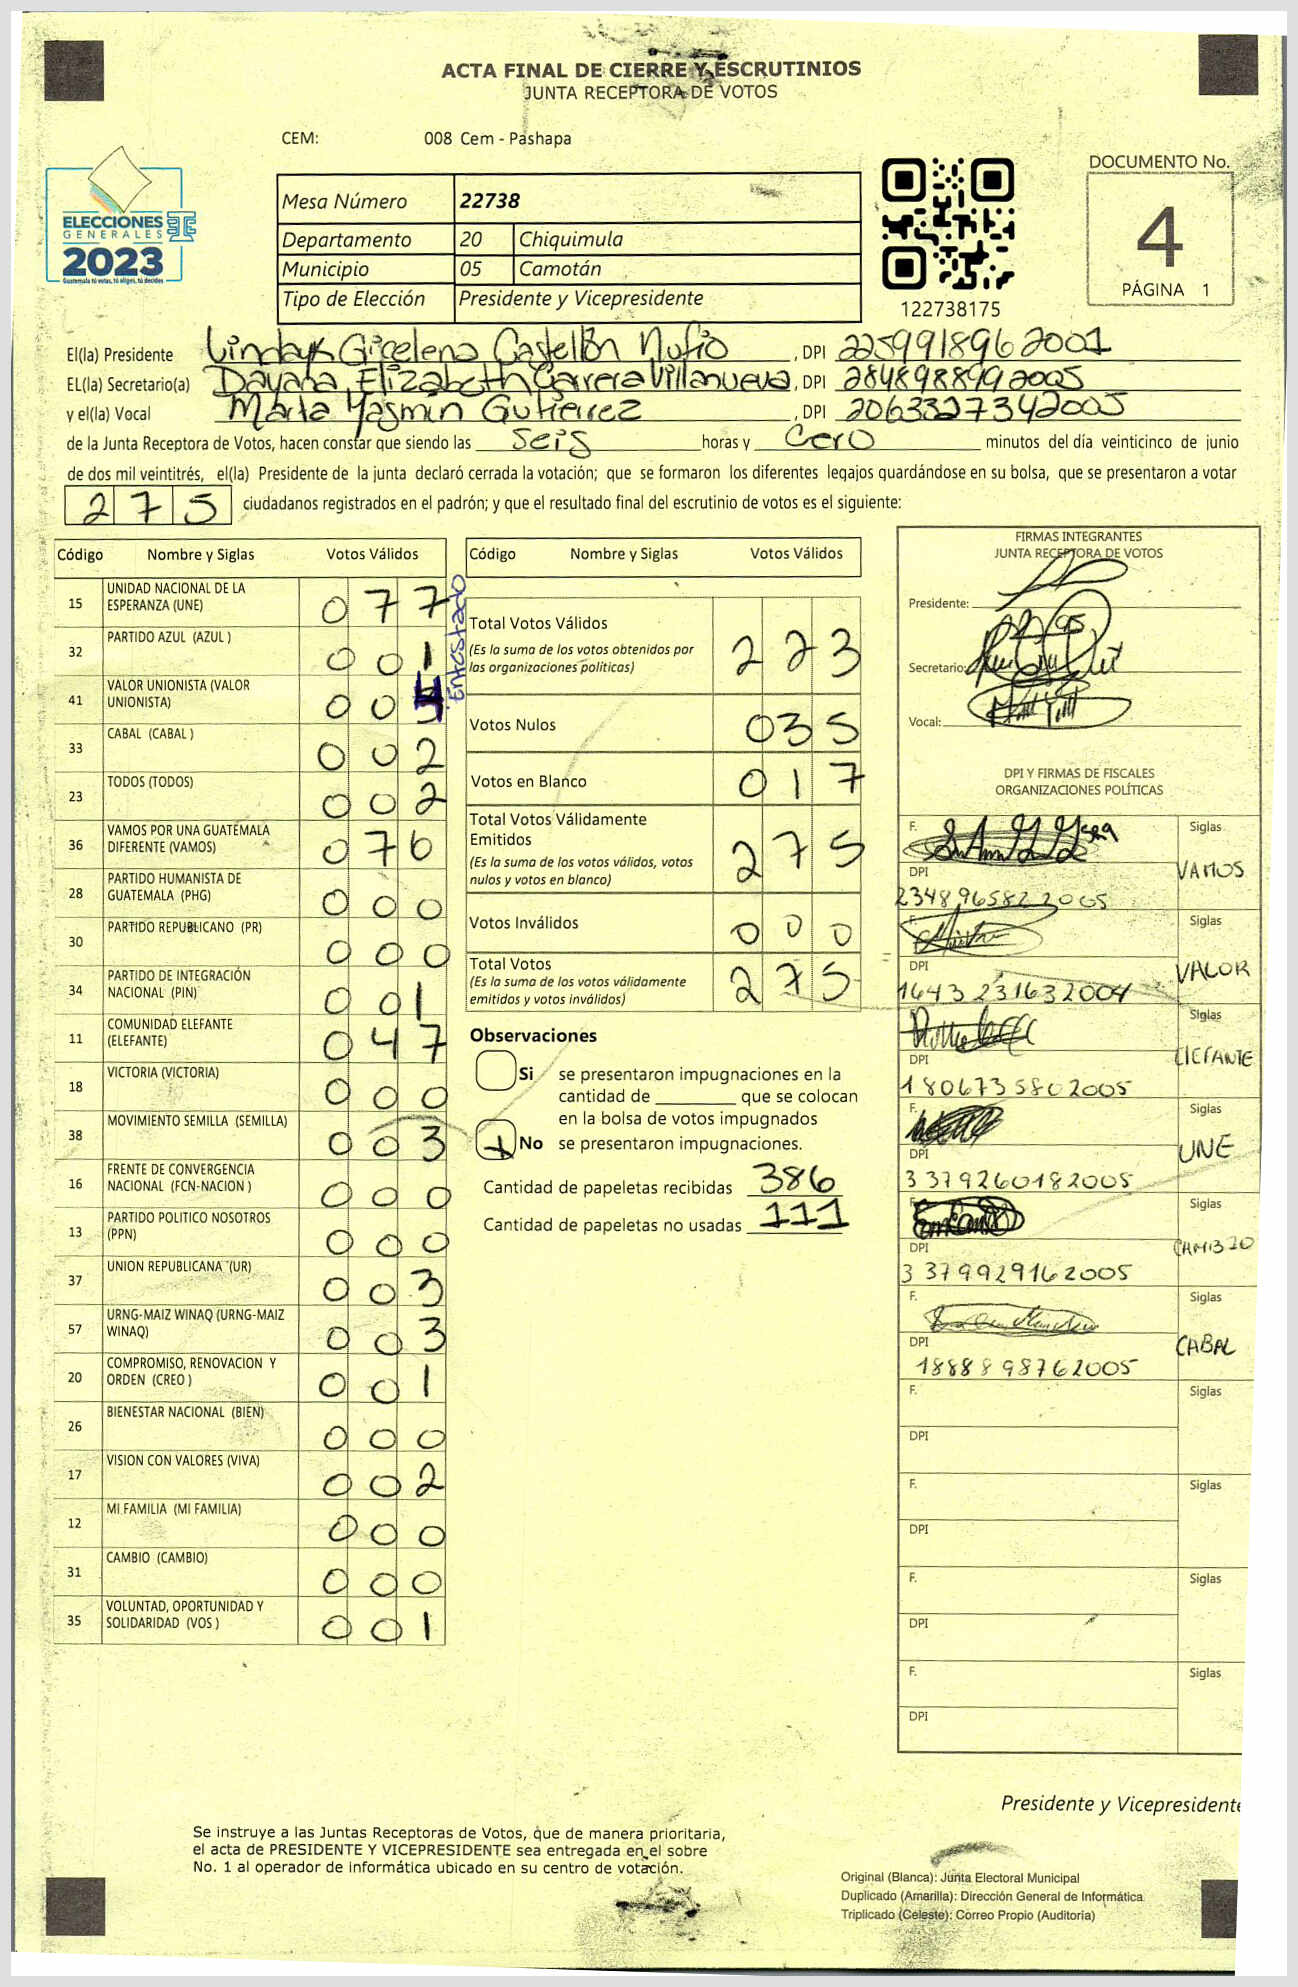 ACTA FINAL DE CIERRE Y ESCRUTINIOS
JUNTA RECEPTORA DE VOTOS
CEM: 008 Cem - Pashapa
ELECCIONES
GENERALES
2023
Guatemala tú votas, tú eliges, tú decides
Mesa Número 22738
Departamento 20 Chiquimula
Municipio 05 Camotán
Tipo de Elección Presidente y Vicepresidente
122738175
DOCUMENTO No.
4
PÁGINA 1
El(la) Presidente Lindayk Gicelena Castellón Nufio, DPI 2259918962001
EL(la) Secretario(a) Dayana Elizabeth Carrera Villanueva, DPI 2848988992005
y el(la) Vocal Marta Yasmin Gutierrez, DPI 2063327342005
de la Junta Receptora de Votos, hacen constar que siendo las seis horas y cero minutos del día veinticinco de junio
de dos mil veintitrés, el(la) Presidente de la junta declaró cerrada la votación; que se formaron los diferentes legajos quardándose en su bolsa, que se presentaron a votar
275 ciudadanos registrados en el padrón; y que el resultado final del escrutinio de votos es el siguiente:
Código Nombre y Siglas Votos Válidos
15 UNIDAD NACIONAL DE LA ESPERANZA (UNE) 077
32 PARTIDO AZUL (AZUL ) 001
41 VALOR UNIONISTA (VALOR UNIONISTA) 004
33 CABAL (CABAL ) 002
23 TODOS (TODOS) 002
36 VAMOS POR UNA GUATEMALA DIFERENTE (VAMOS) 076
28 PARTIDO HUMANISTA DE GUATEMALA (PHG) 000
30 PARTIDO REPUBLICANO (PR) 000
34 PARTIDO DE INTEGRACIÓN NACIONAL (PIN) 001
11 COMUNIDAD ELEFANTE (ELEFANTE) 047
18 VICTORIA (VICTORIA) 000
38 MOVIMIENTO SEMILLA (SEMILLA) 003
16 FRENTE DE CONVERGENCIA NACIONAL (FCN-NACION ) 000
13 PARTIDO POLITICO NOSOTROS (PPN) 000
37 UNION REPUBLICANA (UR) 003
57 URNG-MAIZ WINAQ (URNG-MAIZ WINAQ) 003
20 COMPROMISO, RENOVACION Y ORDEN (CREO ) 001
26 BIENESTAR NACIONAL (BIEN) 000
17 VISION CON VALORES (VIVA) 002
12 MI FAMILIA (MI FAMILIA) 000
31 CAMBIO (CAMBIO) 000
35 VOLUNTAD, OPORTUNIDAD Y SOLIDARIDAD (VOS ) 001
Código Nombre y Siglas Votos Válidos
Total Votos Válidos 223
(Es la suma de los votos obtenidos por
las organizaciones políticas)
Votos Nulos 035
Votos en Blanco 017
Total Votos Válidamente
Emitidos 275
(Es la suma de los votos válidos, votos
nulos y votos en blanco)
Votos Inválidos 000
Total Votos 275
(Es la suma de los votos válidamente
emitidos y votos inválidos)
Observaciones
Si se presentaron impugnaciones en la
cantidad de ________ que se colocan
en la bolsa de votos impugnados
No se presentaron impugnaciones.
Cantidad de papeletas recibidas 386
Cantidad de papeletas no usadas 111
FIRMAS INTEGRANTES
JUNTA RECEPTORA DE VOTOS
Presidente:
Secretario:
Vocal:
DPI Y FIRMAS DE FISCALES
ORGANIZACIONES POLÍTICAS
F. Siglas
DPI VAMOS
2348965822005
F. Siglas
DPI VALOR
1643231632004
Siglas
DPI
1806735802005
F. Siglas
DPI UNE
3379260182005
F. Siglas
DPI CAMBIO
3379929162005
F. Siglas
DPI CABAL
1888898762005
F. Siglas
DPI
F. Siglas
DPI
F. Siglas
DPI
F. Siglas
DPI
Presidente y Vicepresidente
Se instruye a las Juntas Receptoras de Votos, que de manera prioritaria,
el acta de PRESIDENTE Y VICEPRESIDENTE sea entregada en el sobre
No. 1 al operador de informática ubicado en su centro de votación.
Original (Blanca): Junta Electoral Municipal
Duplicado (Amarilla): Dirección General de Informática
Triplicado (Celeste): Correo Propio (Auditoria)